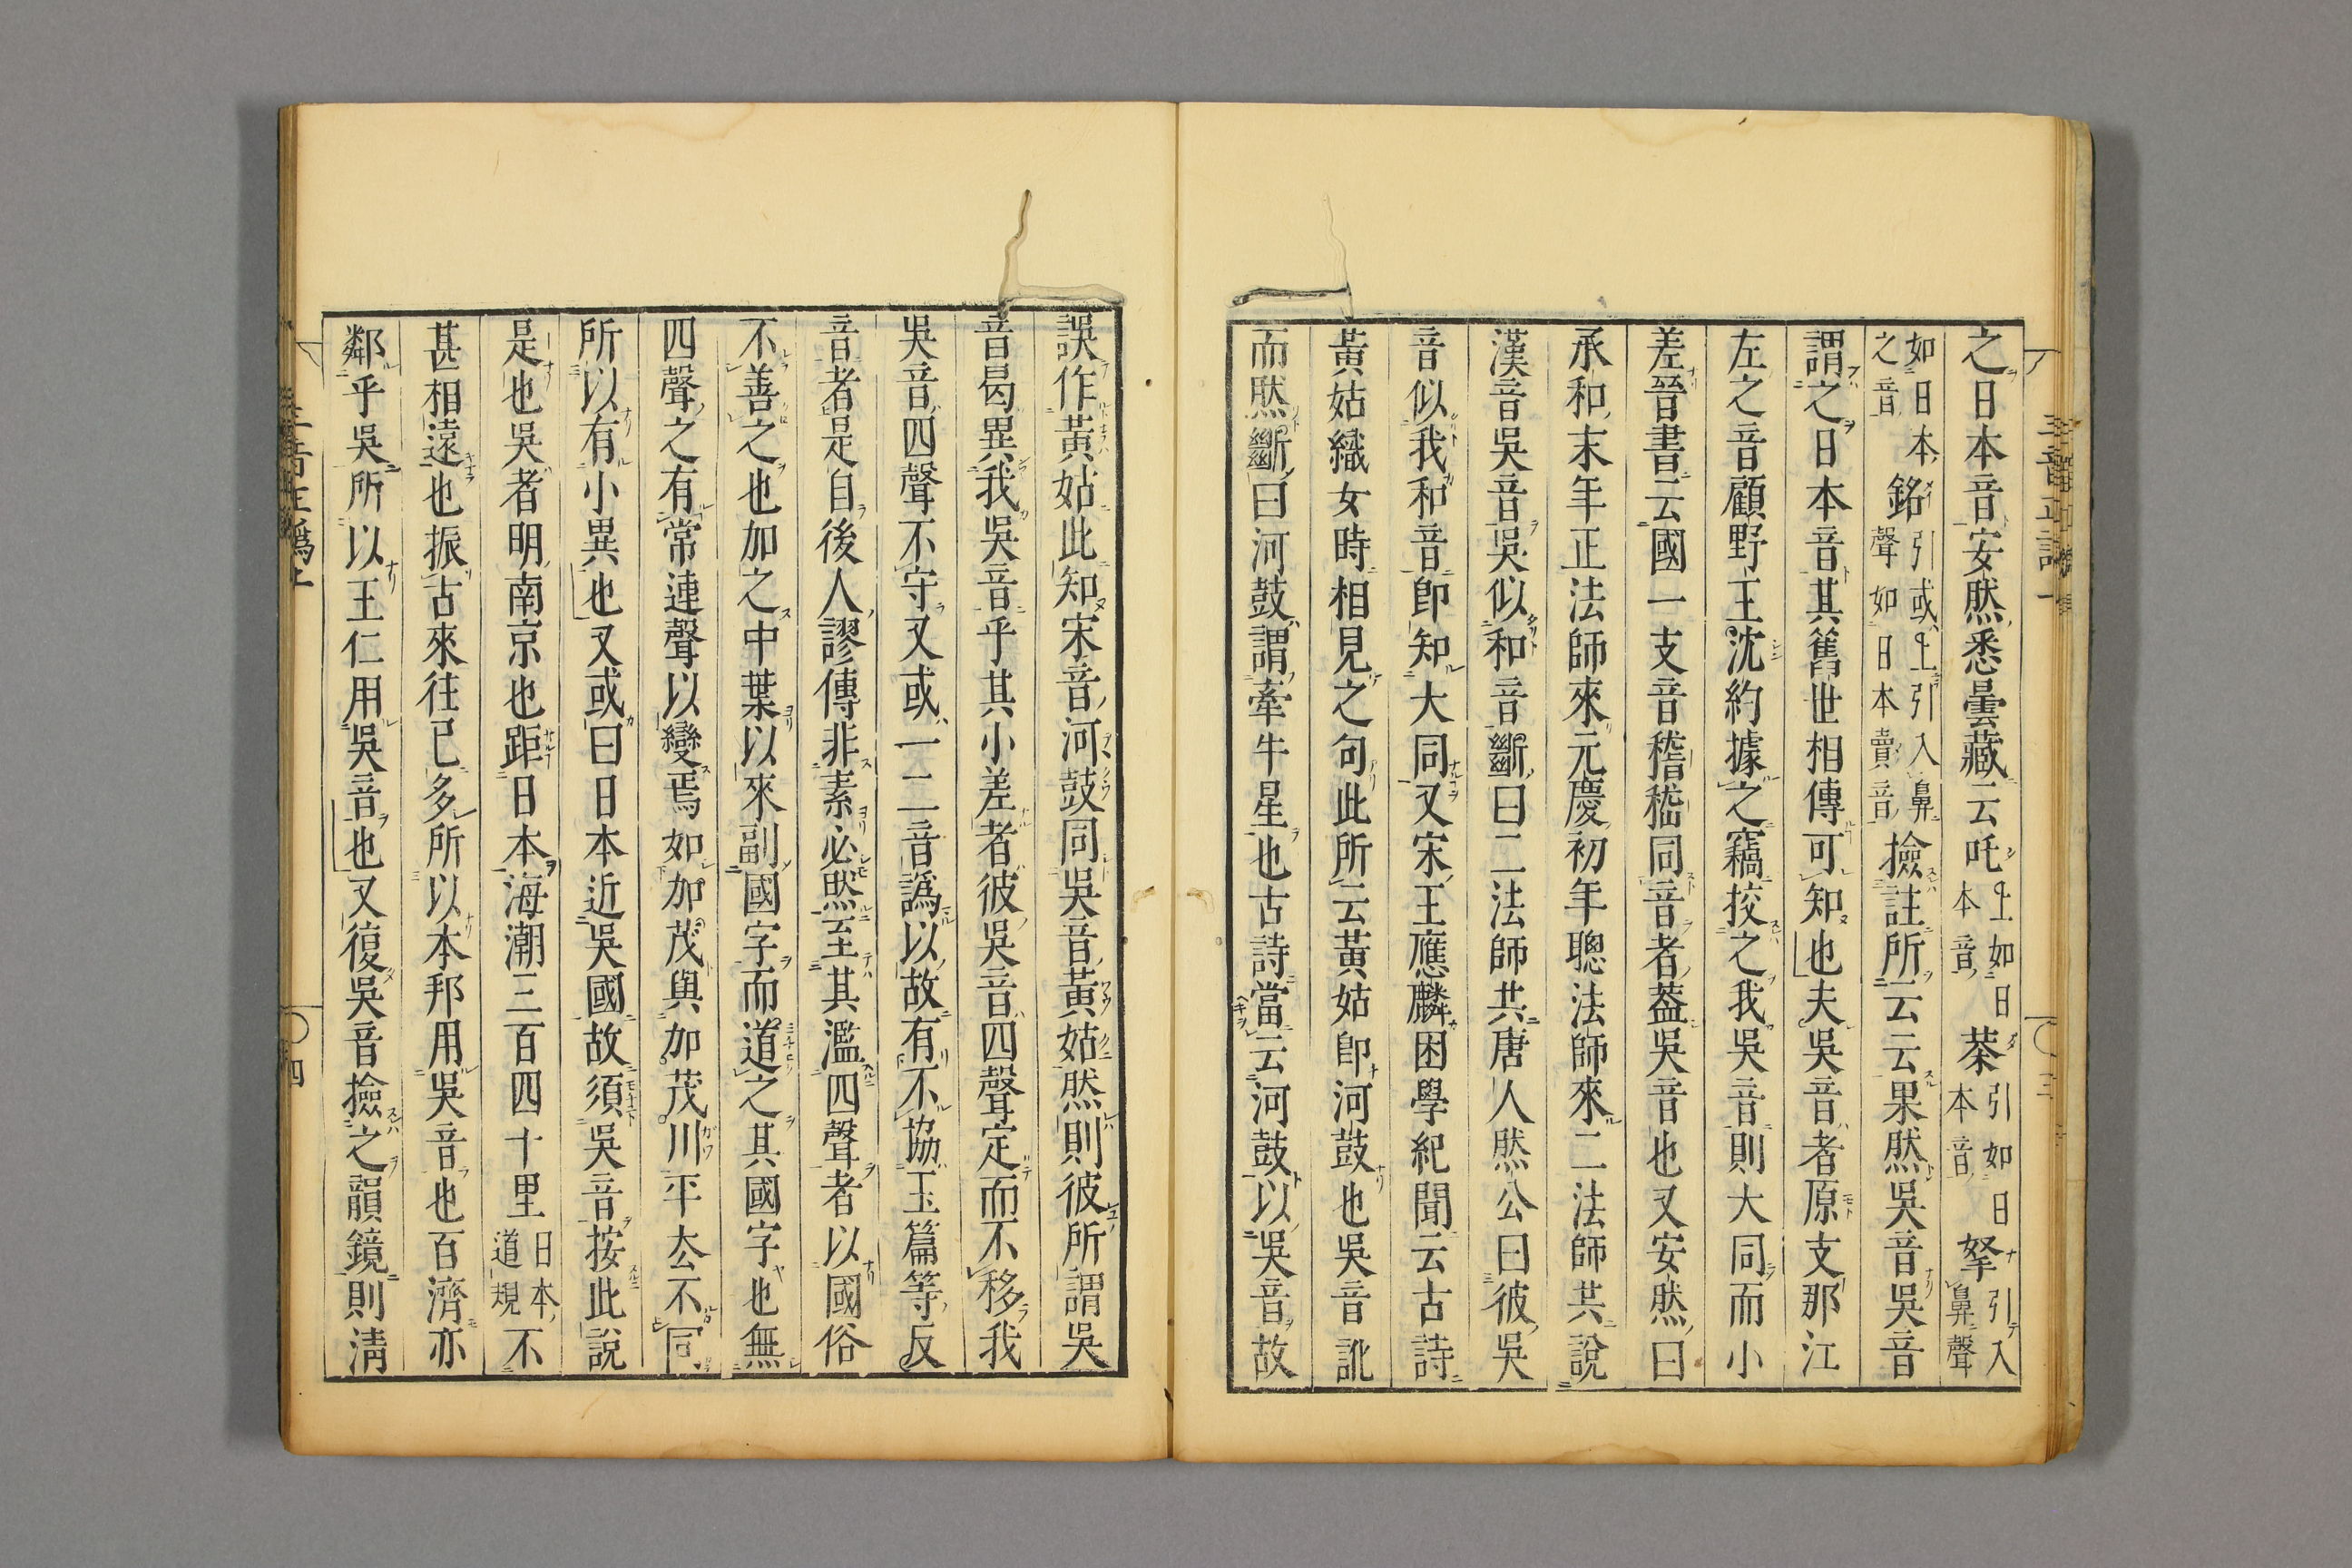 之日本音安然悉曇藏云吒上如日本音荼引如日本音拏引入鼻聲
如日本之音銘引或上引入鼻聲如日本賣音撿註所云云果然吳音吳音
謂之日本音其舊世相傳可知也夫吳音者原支那江
左之音顧野王沈約據之竊挍之我吳音則大同而小
差晉書云國一支音稽嵇同音者葢吳音也又安然曰
承和末年正法師來元慶初年聰法師來二法師共說
漢音吳音吳似和音斷曰二法師共唐人然公曰彼吳
音似我和音卽知大同又宋王應麟困學紀聞云古詩
黃姑織女時相見之句此所云黃姑卽河鼓也吳音訛
而然斷曰河鼓謂牽牛星也古詩當云河鼓以吳音故
誤作黃姑此知宋音河鼓同吳音黃姑然則彼所謂吳
音曷異我吳音乎其小差者彼吳音四聲定而不移我
吳音四聲不守又或一二音譌以故有不協玉篇等反
音者是自後人謬傳非素必然至其濫四聲者以國俗
不善之也加之中葉以來副國字而道之其國字也無
四聲之有常連聲以變焉如加茂與加茂川平去不同
所以有小異也又或曰日本近吳國故須吳音按此說
是也吳者明南京也距日本海潮三百四十里日本道規不
甚相遠也振古來往已多所以本邦用吳音也百濟亦
鄰乎吳所以王仁用吳音也又復吳音撿之韻鏡則淸
四